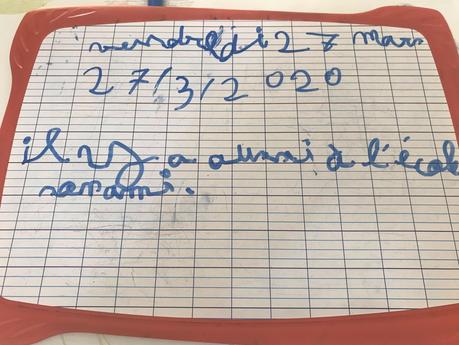 vendredi 27 mars
27/3/2020
il y a aussi à l'école
sanami.